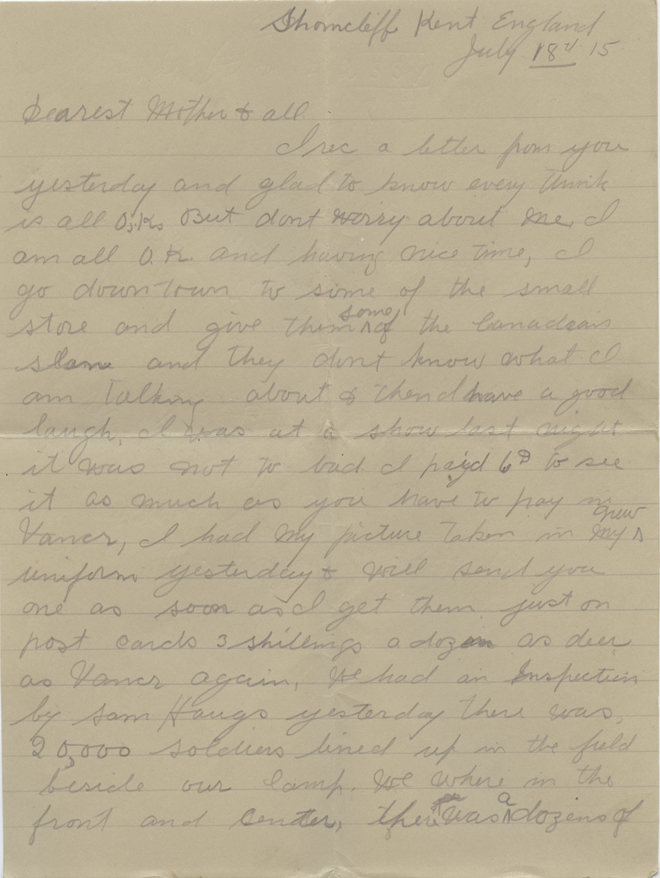 Shorncliff Kent England
July 18th 15
Dearest Mother & all
I rec a letter from you
yesterday and glad to know every think
is all O.K. But dont worry about me, I
am all O.K. and having nice time, I
go down town to some of the small
store and give them some of the Canadian
slang and they dont know what I
am talking about & then I have a good
laugh, I was at a show last night
it was not to bad I paid 6d to see
it as much as you have to pay in
Vancr, I had my picture taken in my new
uniform yesterday & will send you
one as soon as I get them just on
post cards 3 shillings a dozen as deer
as Vancr again, We had an Inspection
by Sam Haugs yesterday there was
20,000 soldiers lined up in the field
beside our camp. We where in the
front and center, there was a dozens of